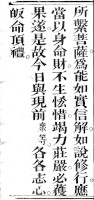 所繫菩薩為能如實信解如說修行應
當以身命財不生悋惜竭力莊嚴必獲
果遂是故今日與現前衆等各各志心
皈命頂禮